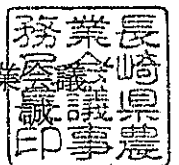 長崎県農
業会議事
務局 印
業 議